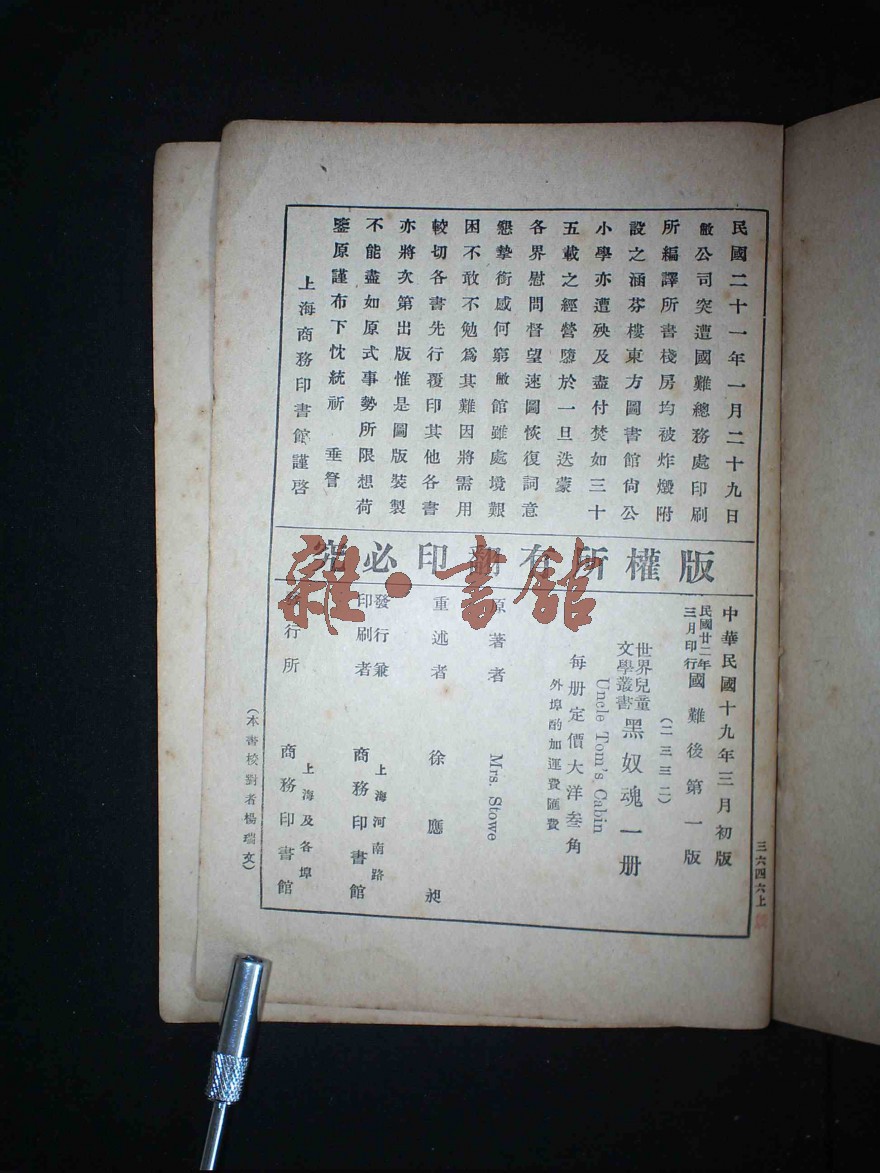 民國二十一年一月二十九日
敝公司突遭國難總務處印刷
所編譯所書棧房均被炸燬附
設之涵芬樓東方圖書館尙公
小學亦遭殃及盡付焚如三十
五載之經營隳於一旦迭蒙
各界慰問督望速圖恢復詞意
懇摯銜感何窮敝館雖處境艱
困不敢不勉爲其難因將需用
較切各書先行覆印其他各書
亦將次第出版惟是圖版裝製
不能盡如原式事勢所限想荷
鑒原謹布下忱統祈 垂詧
上海商務印書館謹啓
版權所有翻印必究
中華民國十九年三月初版
民國廿二年三月印行國難後第一版
(二三三二)
世界兒童文學叢書 黑奴魂一册
Uncle Tom's Cabin
每册定價大洋叁角
外埠酌加運費匯費
原著者 Mrs. Stowe
重述者 徐應昶
發行兼印刷者 上海河南路 商務印書館
發行所 上海及各埠 商務印書館
(本書校對者楊瑞文)
三六四六上
雜·書館